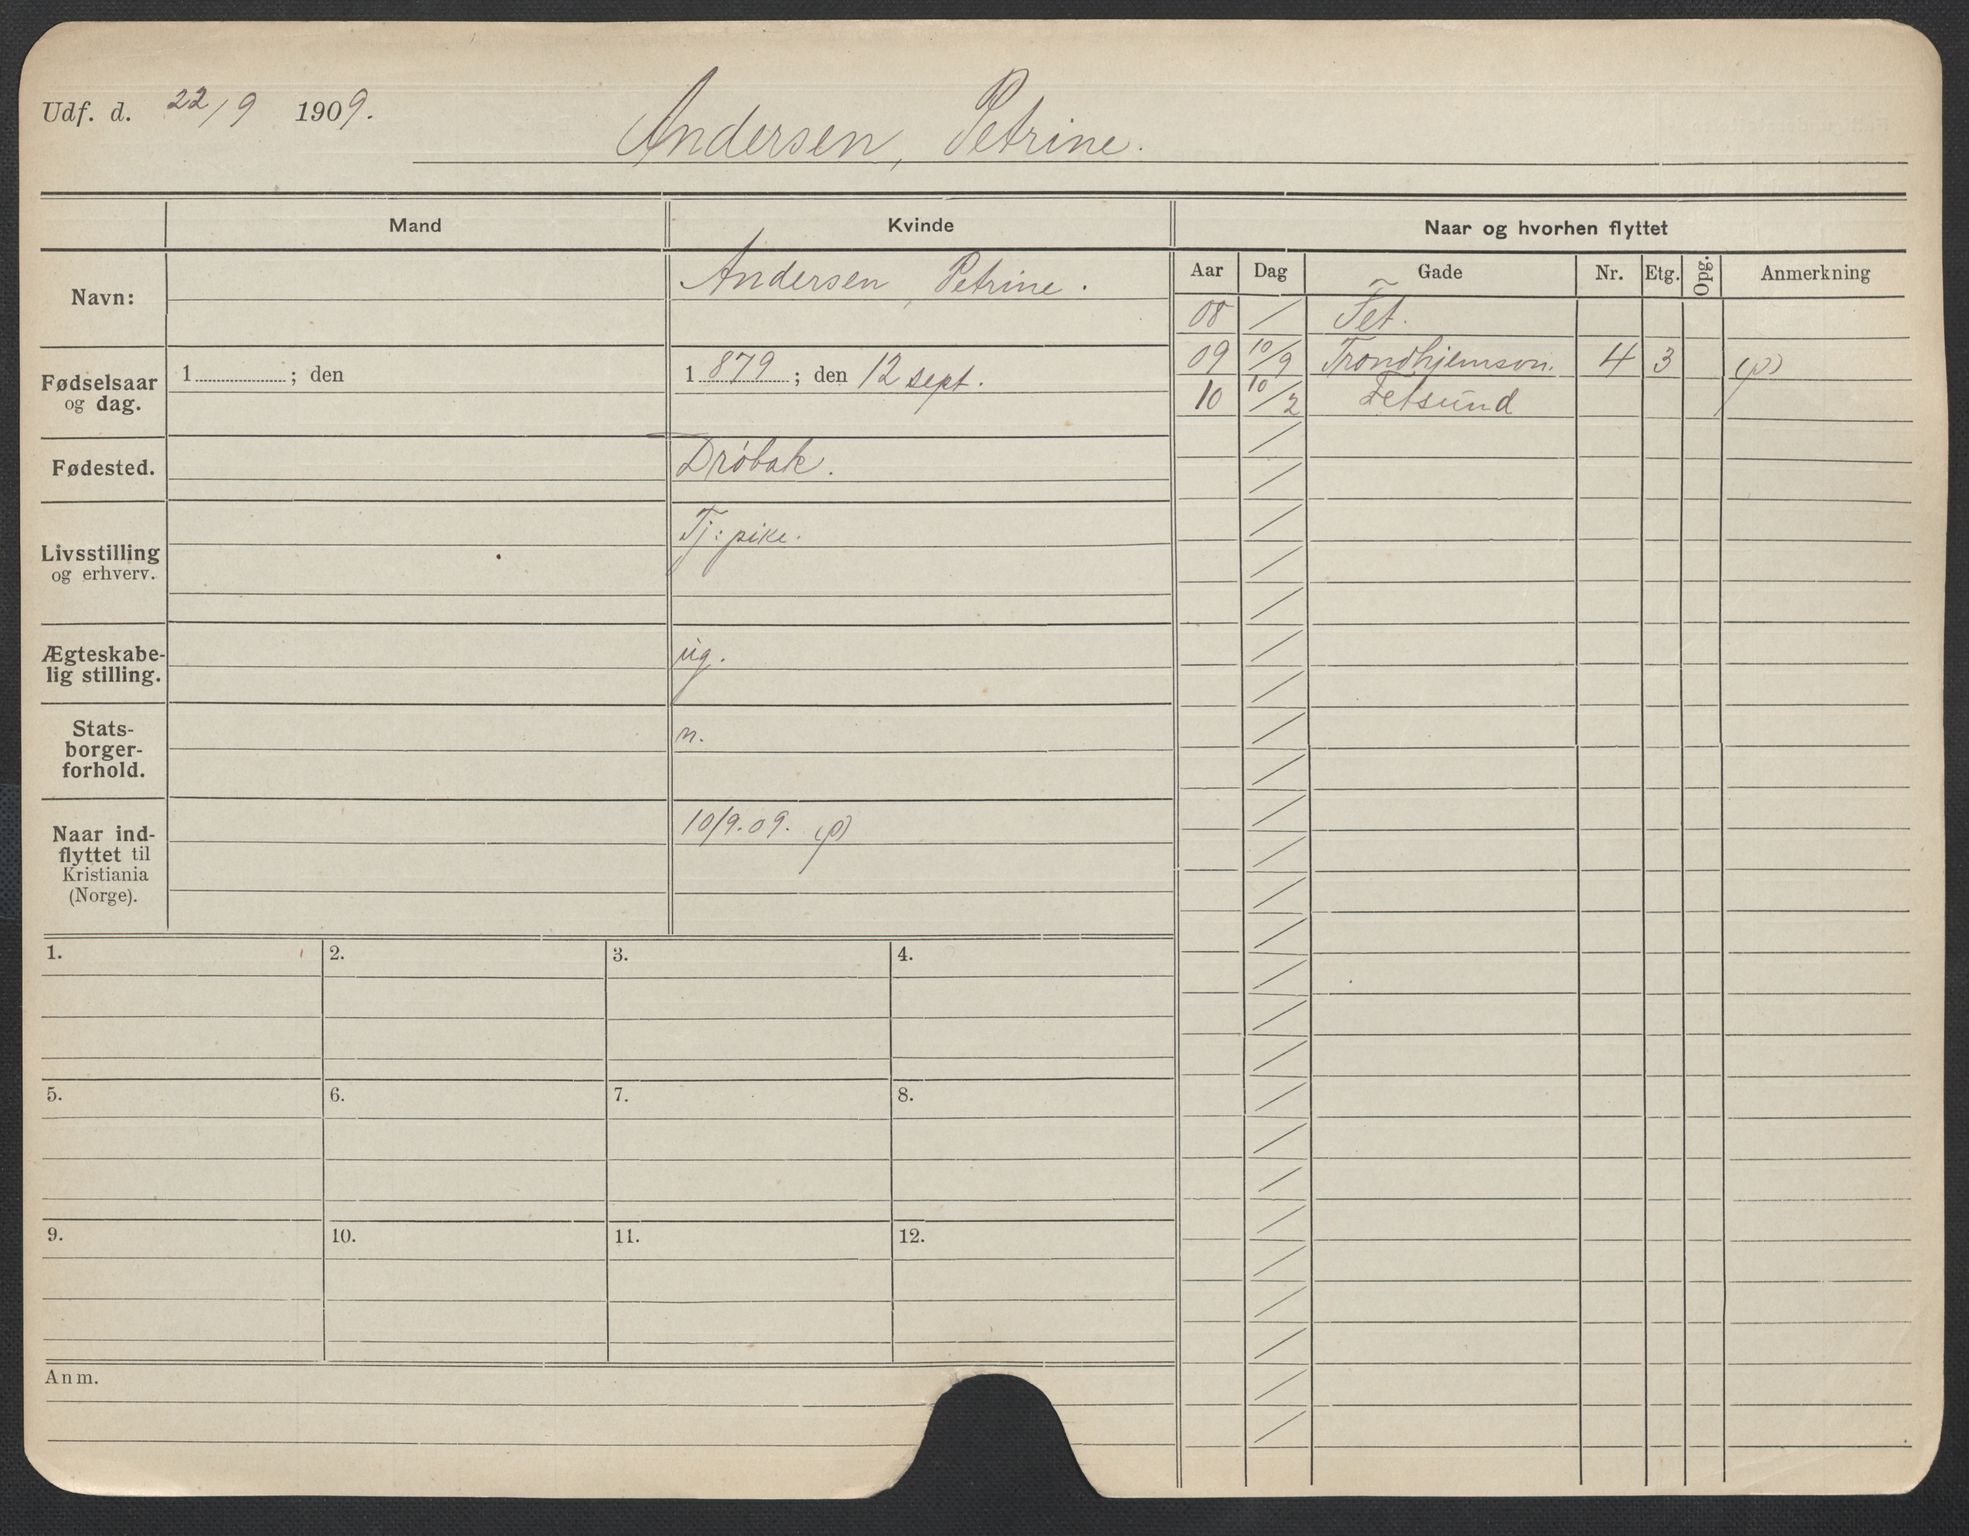 Udf. d. 22/9 1909.
Andersen, Petrine.
Mand Kvinde Naar og hvorhen flyttet
Aar Dag Gade Nr. Etg. Opg. Anmerkning
Navn: Andersen, Petrine.
08 / Fet.
09 10/9 Trondhjemson. 4 3 (p)
10 10/2 Fetsund
Fødselsaar
og dag.
1 ; den 1 879 ; den 12 sept.
Fødested. Drøbak.
Livsstilling
og erhverv.
Tj: pike.
Ægteskabe-
lig stilling.
ug.
Stats-
borger-
forhold.
n.
Naar ind-
flyttet til
Kristiania
(Norge).
10/9.09. (p)
1. 2. 3. 4.
5. 6. 7. 8.
9. 10. 11. 12.
Anm.